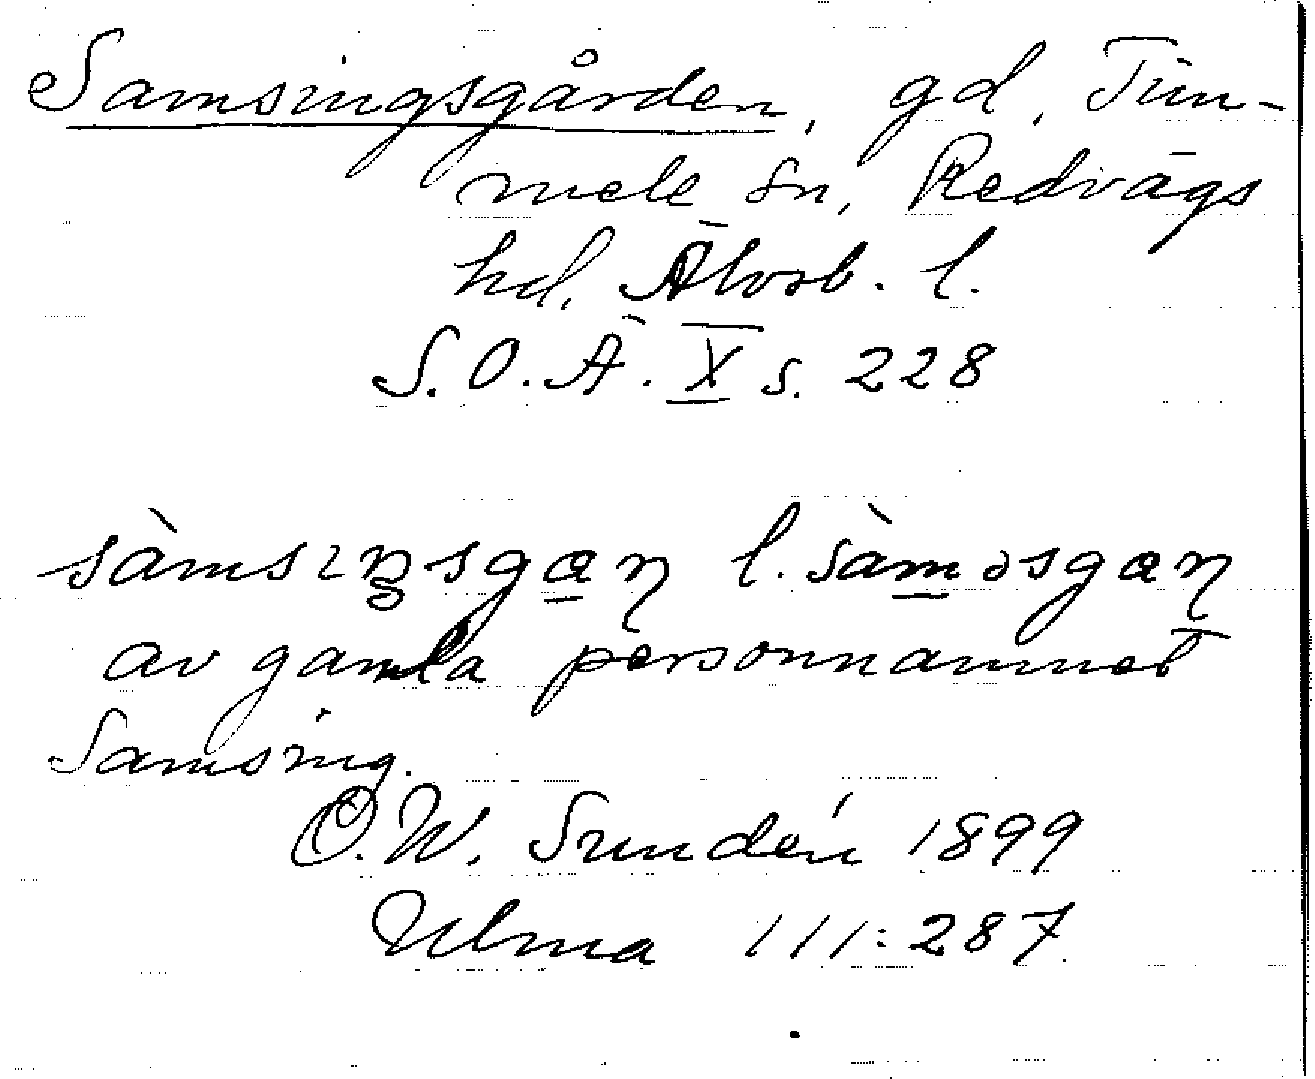 Samsingsgården, gd, Tim-
mele sn, Redvägs
hd, Älvsb. l.
S.O.Ä. X s. 228
sàmsıŋsgaɳ l. sàməsgaɳ
av gamla personnamnet
Samsing.
O.W. Sundén 1899
Ulma 111:287.